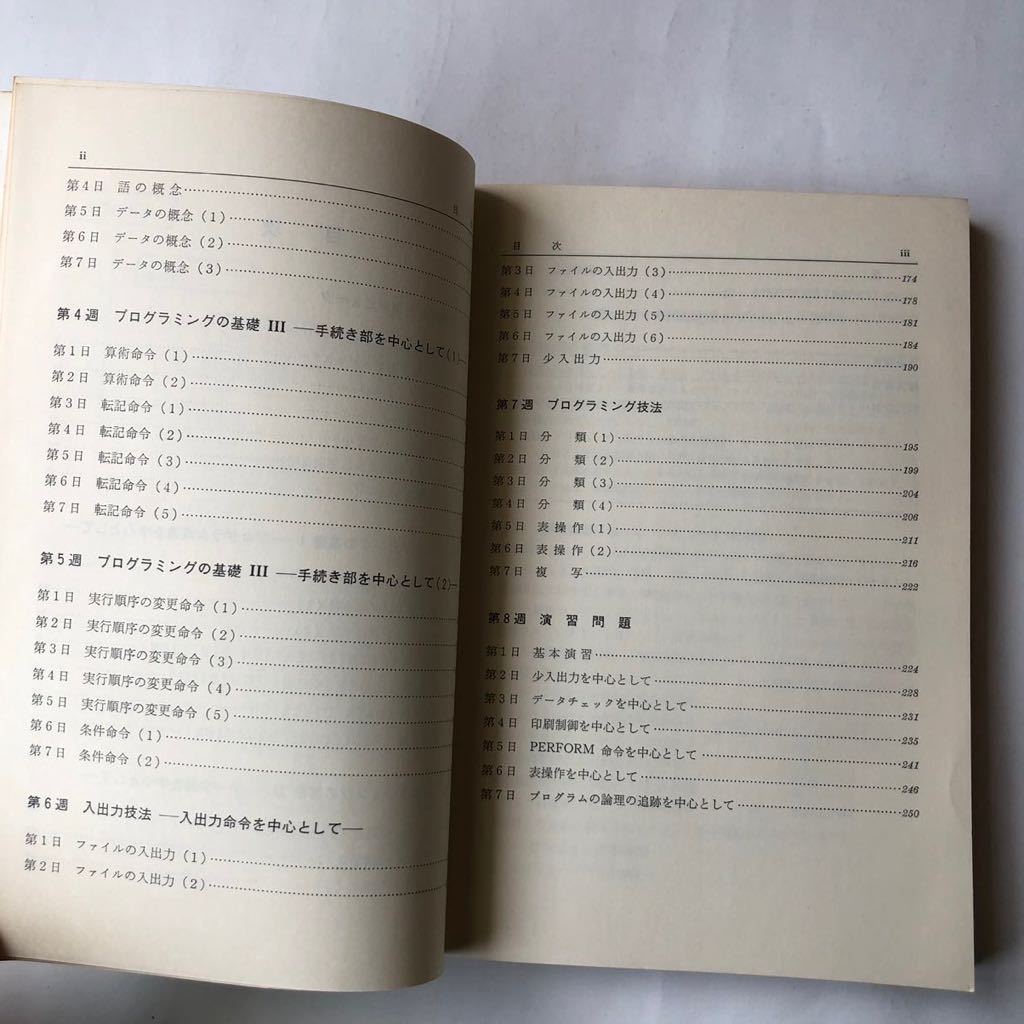 ii
目
第4日 語の概念
第5日 データの概念（1）
第6日 データの概念（2）
第7日 データの概念（3）
第4週 プログラミングの基礎 III ―手続き部を中心として(1)―
第1日 算術命令（1）
第2日 算術命令（2）
第3日 転記命令（1）
第4日 転記命令（2）
第5日 転記命令（3）
第6日 転記命令（4）
第7日 転記命令（5）
第5週 プログラミングの基礎 III ―手続き部を中心として(2)―
第1日 実行順序の変更命令（1）
第2日 実行順序の変更命令（2）
第3日 実行順序の変更命令（3）
第4日 実行順序の変更命令（4）
第5日 実行順序の変更命令（5）
第6日 条件命令（1）
第7日 条件命令（2）
第6週 入出力技法 ―入出力命令を中心として―
第1日 ファイルの入出力（1）
第2日 ファイルの入出力（2）
目 次 iii
第3日 ファイルの入出力（3） 174
第4日 ファイルの入出力（4） 178
第5日 ファイルの入出力（5） 181
第6日 ファイルの入出力（6） 184
第7日 少入出力 190
第7週 プログラミング技法
第1日 分 類（1） 195
第2日 分 類（2） 199
第3日 分 類（3） 204
第4日 分 類（4） 206
第5日 表操作（1） 211
第6日 表操作（2） 216
第7日 複 写 222
第8週 演習問題
第1日 基本演習 224
第2日 少入出力を中心として 228
第3日 データチェックを中心として 231
第4日 印刷制御を中心として 235
第5日 PERFORM 命令を中心として 241
第6日 表操作を中心として 246
第7日 プログラムの論理の追跡を中心として 250